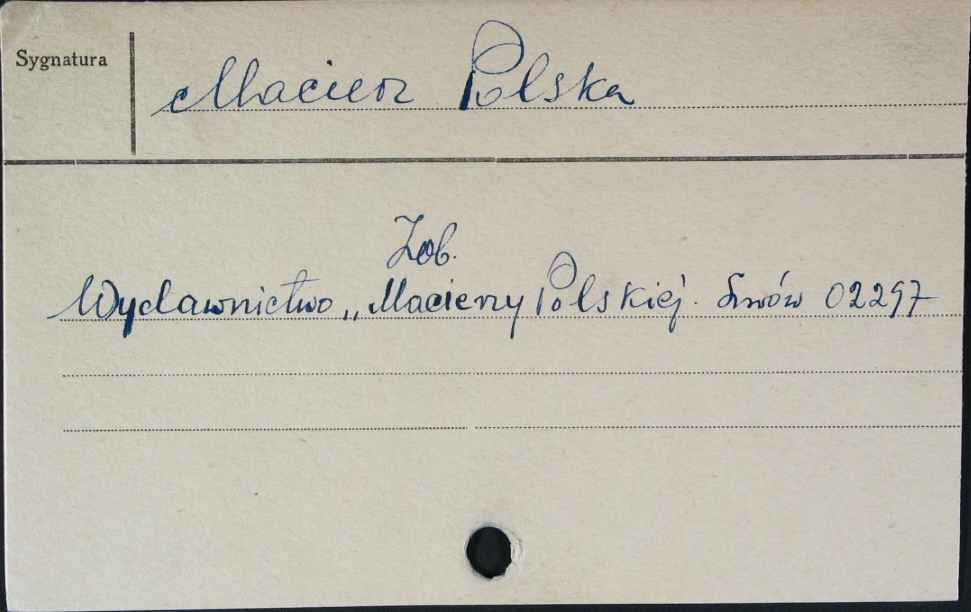 Sygnatura
Macierz Polska
Zob.
Wydawnictwo „Macierzy Polskiej. Lwów 02297